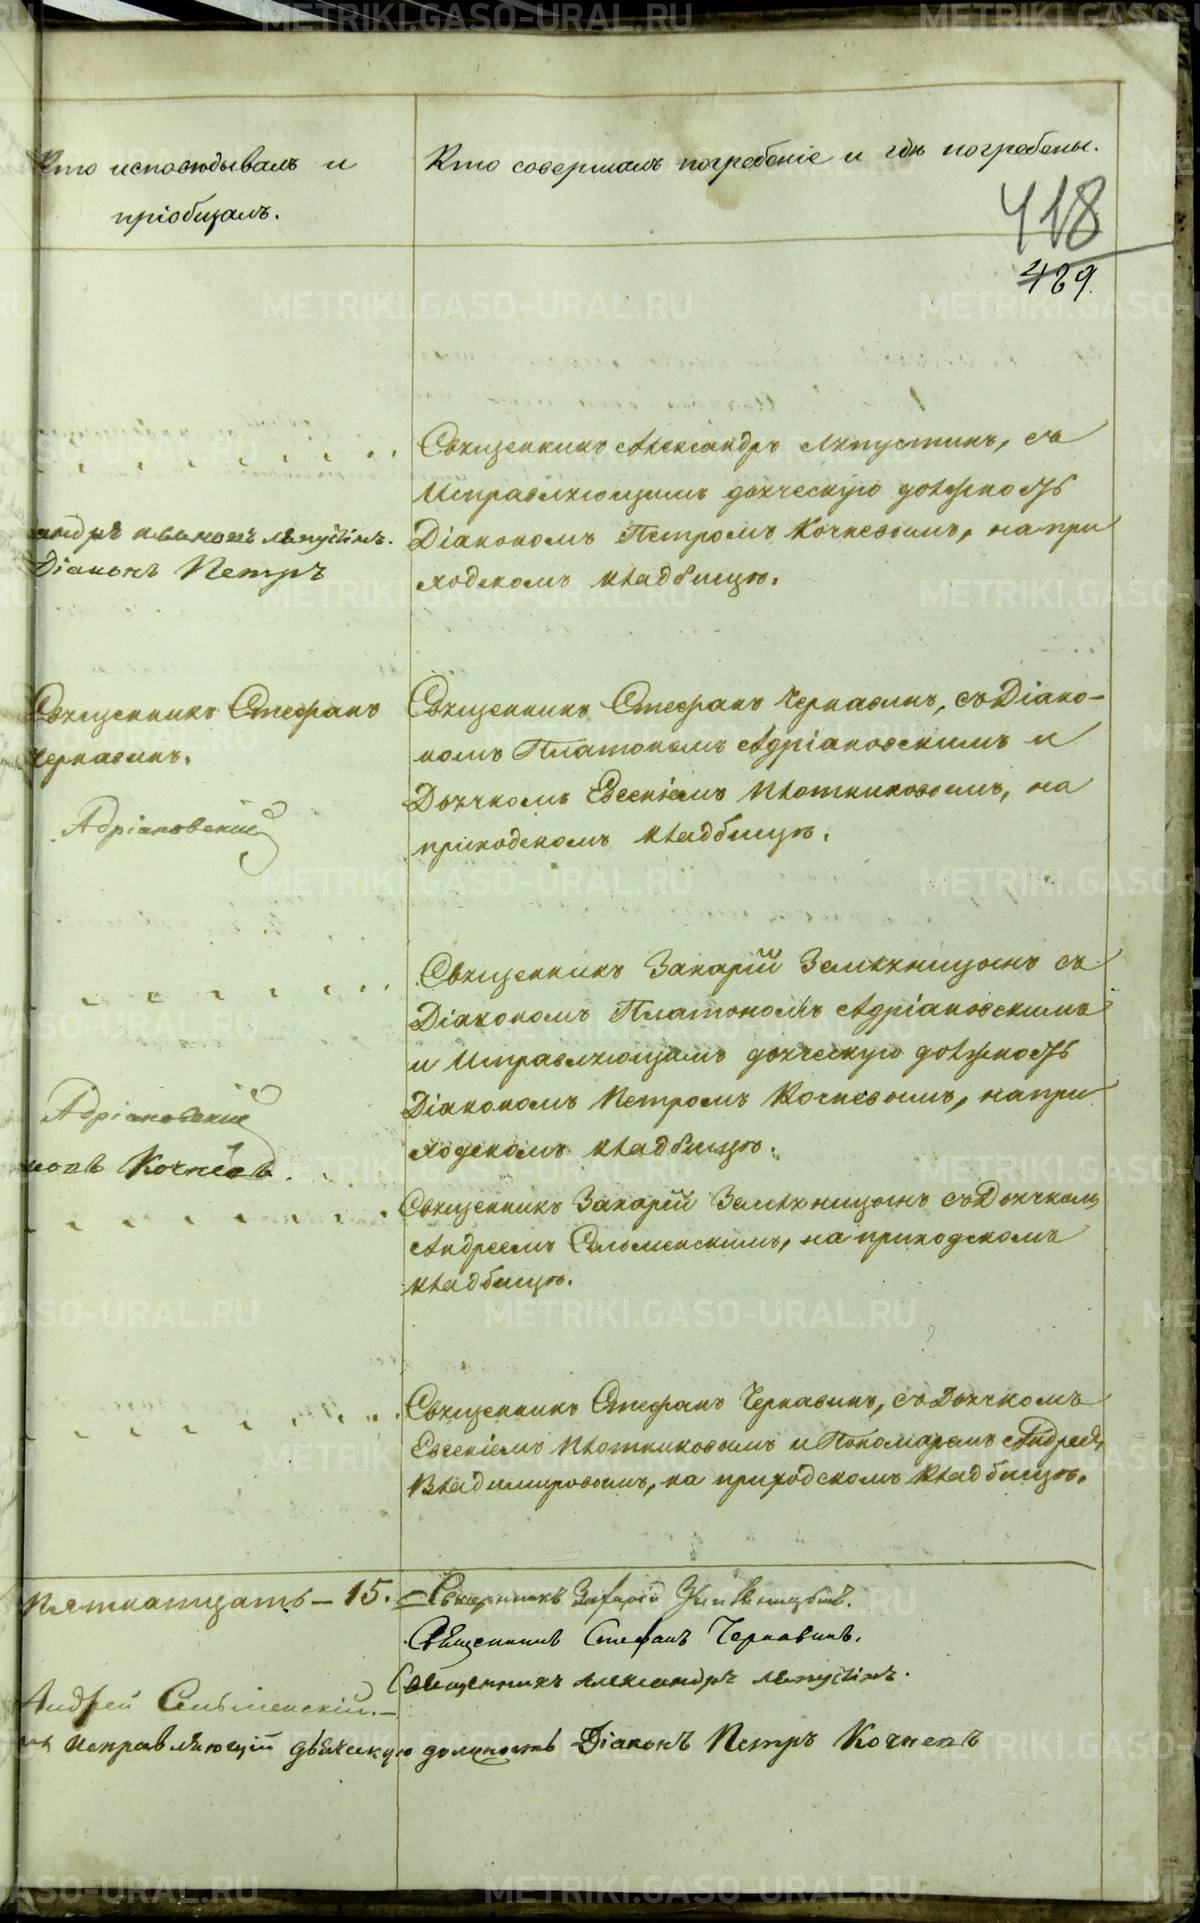 Кто исповѣдывалъ и
пріобщалъ.
Кто совершалъ погребеніе и гдѣ погребены.
418
429.
Священникъ Александръ Ляпустинъ, съ
Исправляющимъ дьяческую должность
Діакономъ Петромъ Кочневымъ, на при
ходскомъ кладбищѣ.
Ляпустинъ.
Діаконъ Петръ
Священникъ Стефанъ
Чернавинъ.
Адріановскій
Священникъ Стефанъ Чернавинъ, съ Діако-
номъ Платономъ Адріановскимъ и
Дьячкомъ Евсеніемъ Плотниковымъ, на
приходскомъ кладбищѣ.
Священникъ Захарій Земляницынъ съ
Діакономъ Платономъ Адріановскимъ
и Исправляющимъ дьяческую должность
Діакономъ Петромъ Кочневымъ, на при
ходскомъ кладбищѣ.
Адріановскій
Кочневъ.
Священникъ Захарій Земляницынъ съ Дьячкомъ
Андреемъ Сельменскимъ, на приходскомъ
кладбищѣ.
Священникъ Стефанъ Чернавинъ, съ Дьячкомъ
Евсеніемъ Плотниковымъ и Пономаремъ Андреем
Владимировымъ, на приходскомъ кладбищѣ.
Пятнатцать – 15. – Священникъ Захарій Земляницынъ.
Священникъ Стефанъ Чернавинъ.
Священникъ Александръ Ляпустинъ.
Андрей Сельменскій. –
Исправляющій дьяческую должность Діаконъ Петръ Кочневъ
METRIKI.GASO-URAL.RU